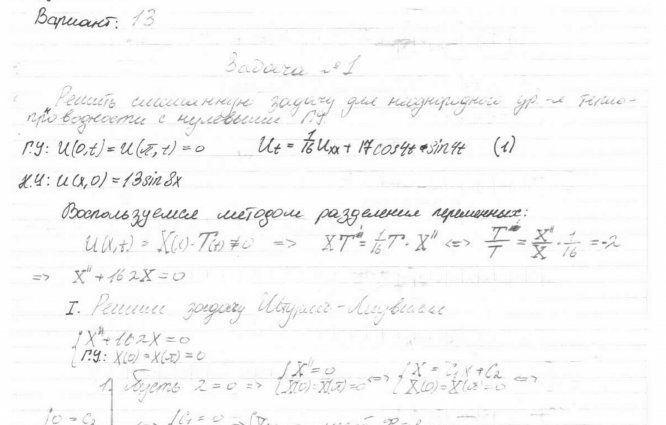 Вариант: 13
Задача №1
Решить смешанную задачу для неоднородного ур-я тепло-
проводности с нулевыми ГУ
Г.У: U(0,t) = U(π,t) = 0 Ut = 1/16 Uxx + 17cos4t + sin4t (1)
Н.У: U(x,0) = 13sin8x
Воспользуемся методом разделения переменных:
U(x,t) = X(x)·T(t) ≠ 0 => XT' = 1/16 T·X'' <=> T'/T = X''/X · 1/16 = -λ
=> X'' + 16λX = 0
I. Решим задачу Штурма-Лиувилля
{X'' + 16λX = 0
{Г.У: X(0) = X(π) = 0
1. Пусть λ = 0 => {X'' = 0 <=> {X = C₁x + C₂
{X(0) = X(π) = 0 {X(0) = X(π) = 0 <=>
{0 = C₂ {C₁ = 0